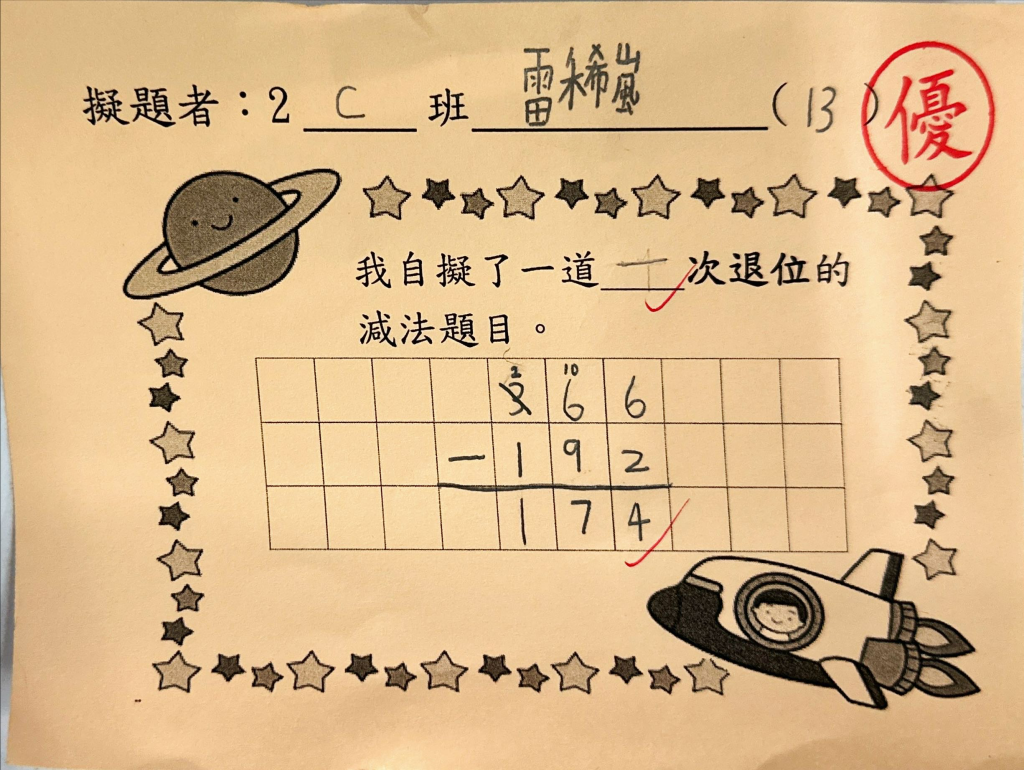 擬題者：2 C 班 雷稀嵐 (13) 優
我自擬了一道 一 次退位的
減法題目。
2 10
3 6 6
− 1 9 2
1 7 4